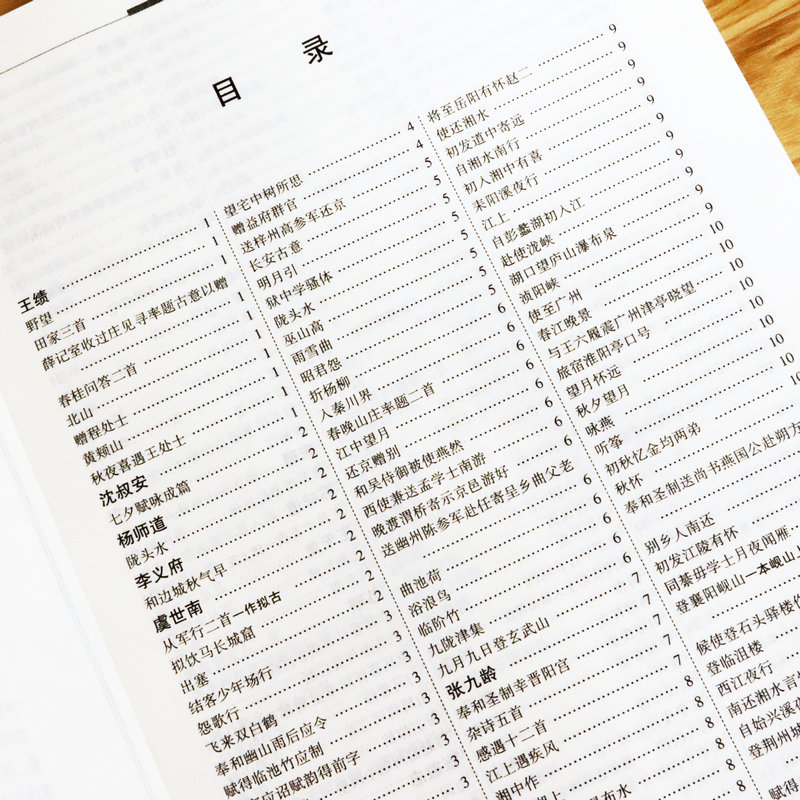 目 录
王绩
野望 1
田家三首 1
薛记室收过庄见寻率题古意以赠
1
春桂问答二首 1
北山 1
赠程处士 1
黄颊山 1
秋夜喜遇王处士 1
沈叔安
七夕赋咏成篇 2
杨师道
陇头水 2
李义府
和边城秋气早 2
虞世南
从军行二首一作拟古 2
拟饮马长城窟 2
出塞 2
结客少年场行 3
怨歌行 3
飞来双白鹤 3
奉和幽山雨后应令 3
赋得临池竹应制 3
应诏赋韵得前字 3
望宅中树所思 4
赠益府群官 4
送梓州高参军还京 5
长安古意 5
明月引 5
狱中学骚体 5
陇头水 5
巫山高 5
雨雪曲 5
昭君怨 6
折杨柳 6
入秦川界 6
春晚山庄率题二首 6
江中望月 6
还京赠别 6
和吴侍御被使燕然 6
西使兼送孟学士南游 6
晚渡渭桥寄示京邑游好 6
送幽州陈参军赴任寄呈乡曲父老
6
曲池荷 6
浴浪鸟 6
临阶竹 6
九陇津集 7
九月九日登玄武山 7
张九龄
奉和圣制幸晋阳宫 7
杂诗五首 7
感遇十二首 8
江上遇疾风 8
湘中作 8
将至岳阳有怀赵二 9
使还湘水 9
初发道中寄远 9
自湘水南行 9
初入湘中有喜 9
耒阳溪夜行 9
江上 9
自彭蠡湖初入江 9
赴使泷峡 9
湖口望庐山瀑布泉 9
浈阳峡 10
使至广州 10
春江晚景 10
与王六履震广州津亭晓望 10
旅宿淮阳亭口号 10
望月怀远 10
秋夕望月 10
咏燕 10
听筝
初秋忆金均两弟
秋怀
奉和圣制送尚书燕国公赴朔方
别乡人南还
初发江陵有怀
同綦毋学士月夜闻雁
登襄阳岘山一本岘山上
候使登石头驿楼作
登临沮楼
西江夜行
南还湘水言
自始兴溪夜
登荆州城
赋得